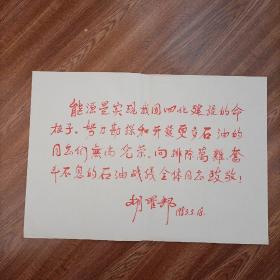 能源是实现我国四化建设的命
柱子。努力勘探和开发更多石油的
同志们无尚光荣。向排除萬難、奋
斗不息的石油战线全体同志致敬！
胡耀邦